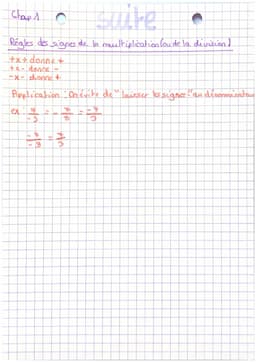 Chap 1
suite
Règles des signes de la multiplication (ou de la division)
+ x + donne +
+ x - donne -
- x - donne +
Application : On évite de "laisser les signes" au dénominateur
ex